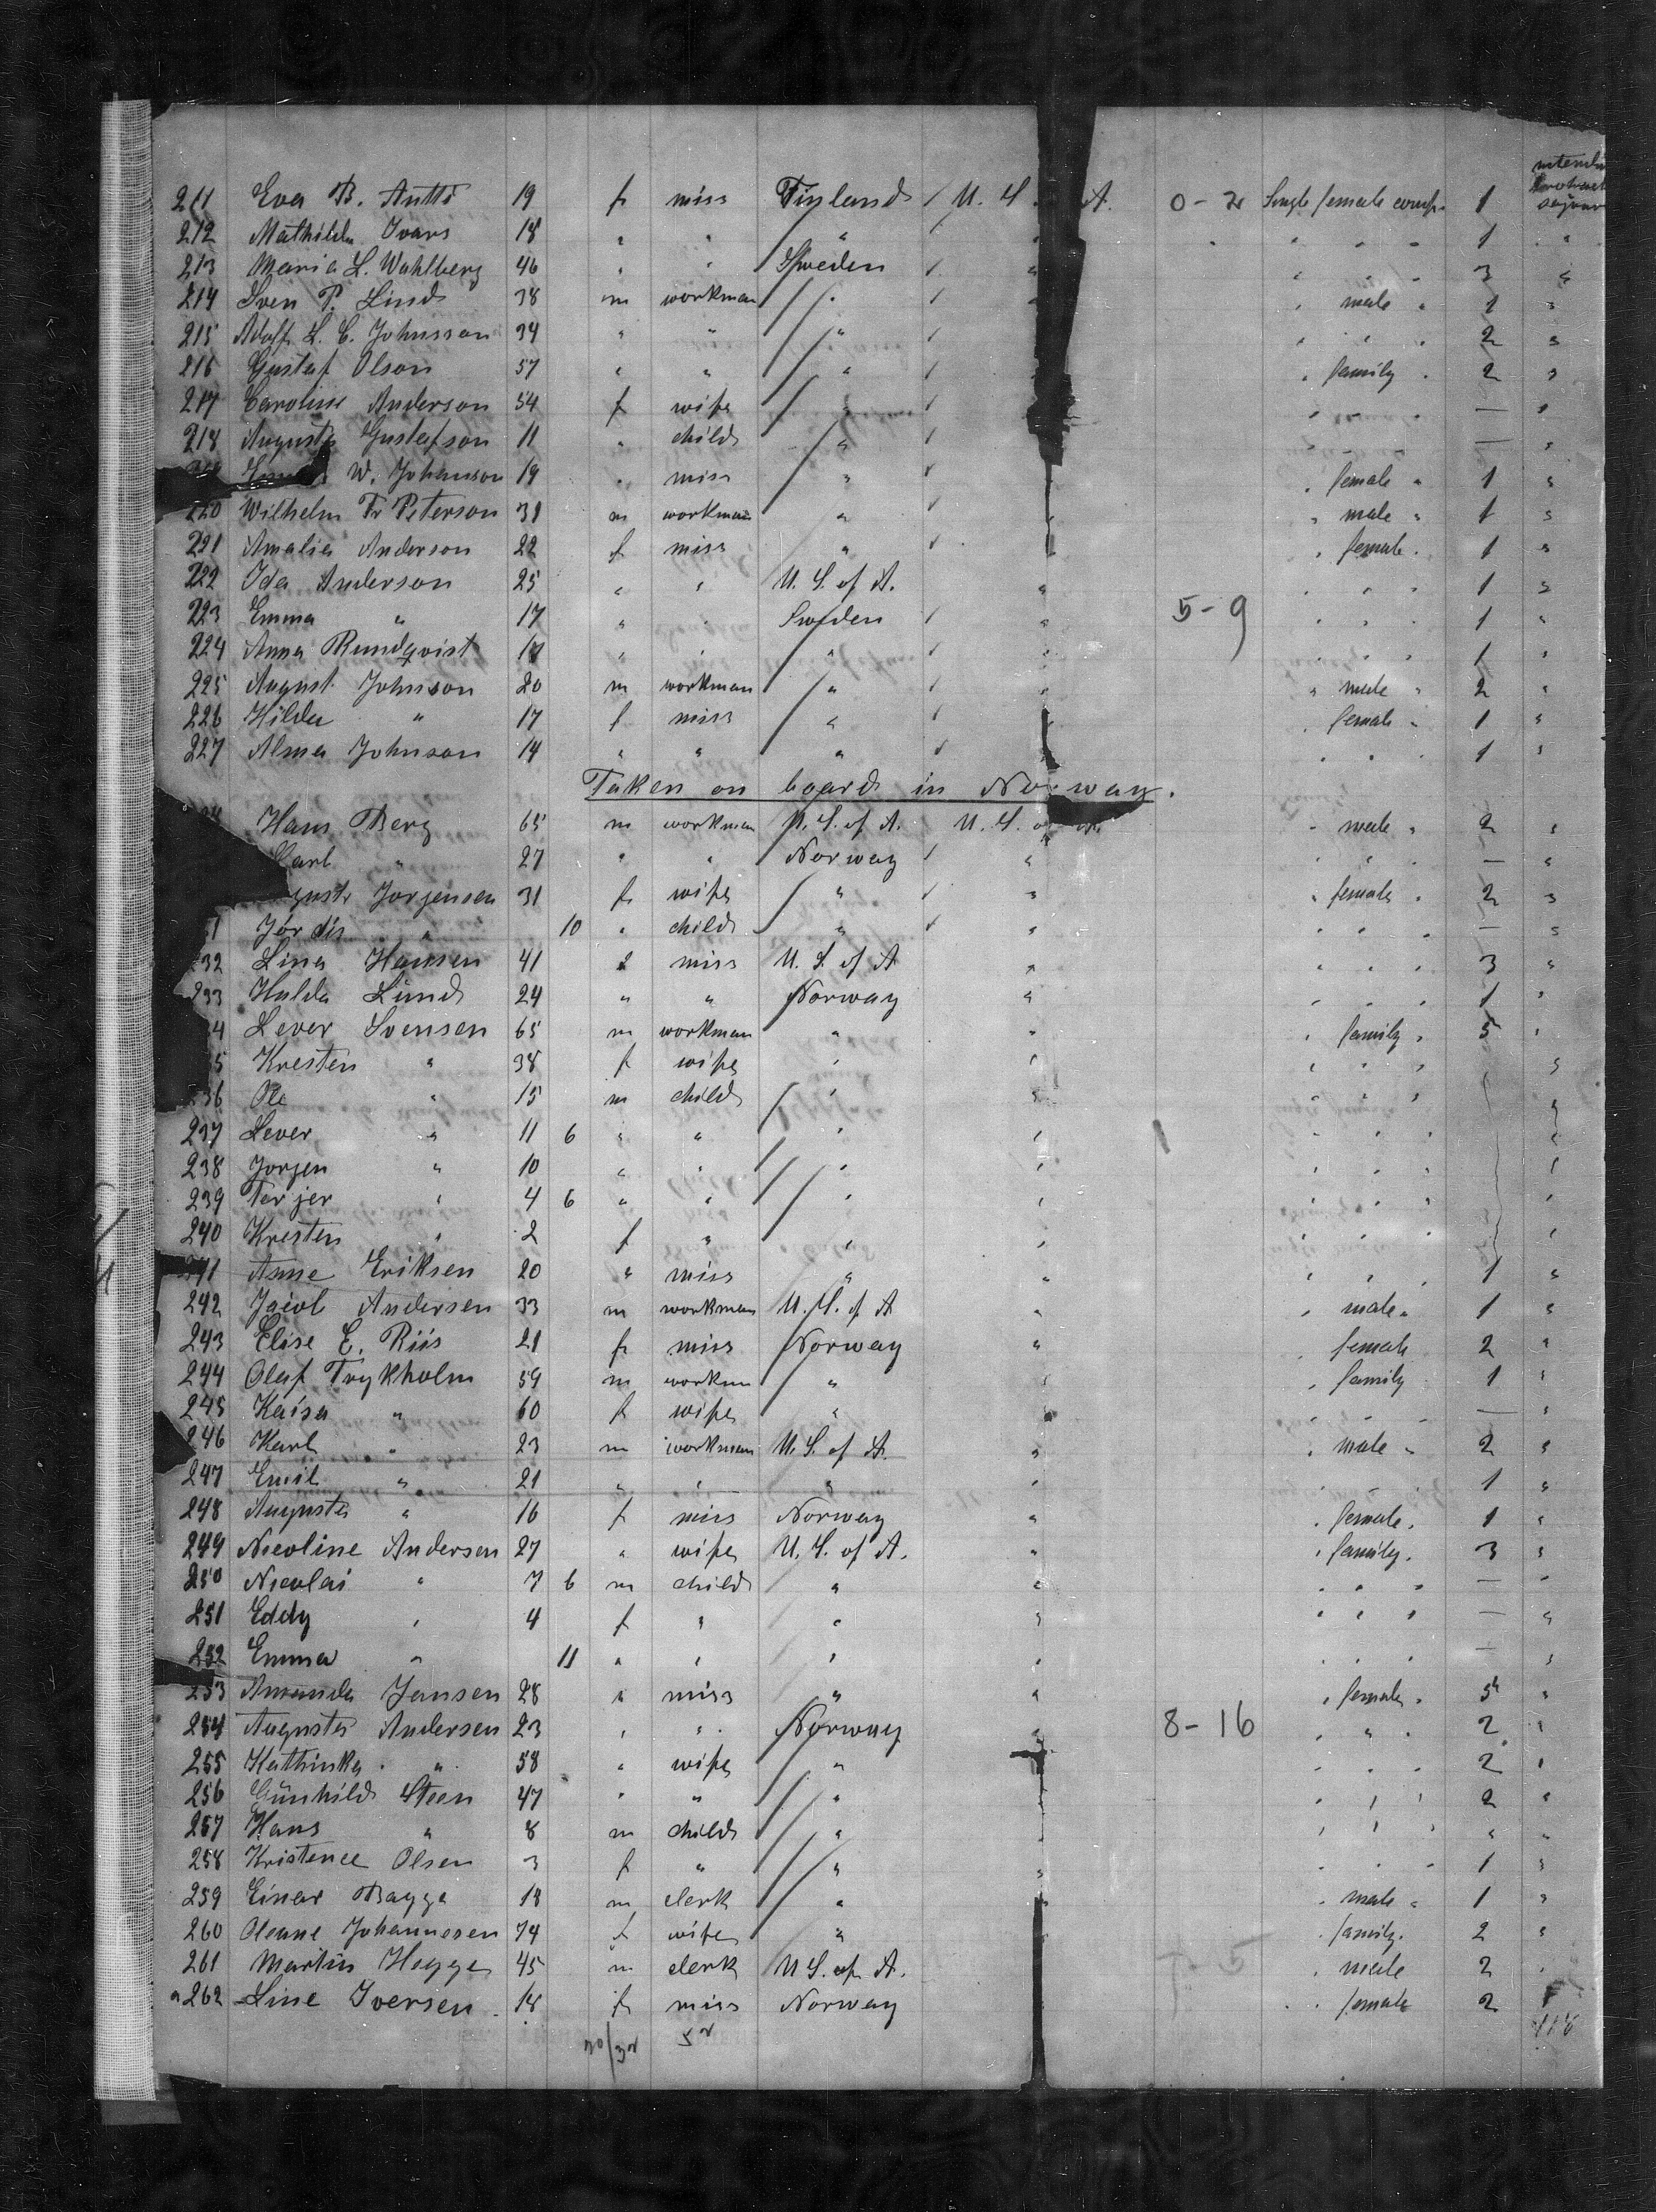 intendin
211 Eva B. Antti 19 f miss Finland / U. S. A. 0 - 2 Single female comp. 1
212 Mathilda Ivars 18 " " " " " " 1 "
213 Maria L. Wahlberg 46 " " Sweden / " " " " 3 "
214 Sven P. Lind 38 m workman " / " " male " 1 "
215 Adolf L. C. Johnsson 34 " " " / " " " 2 "
216 Gustaf Olson 57 " " " / " family " 2 "
217 Caroline Anderson 54 f wife " / " " " — "
218 Augusta Gustafson 11 " child " / — "
W. Johanson 19 " miss " / " female " 1 "
220 Wilhelm Fr Peterson 31 m workman " / " male " 1 "
221 Amalia Anderson 22 f miss " / " female " 1 "
222 Ida Anderson 25 " " U. S. of A. " " " " 1 "
223 Emma " 17 " " Sweden / " 5 - 9 " " " 1 "
224 Anna Rundqvist " " " / " " " " 1 "
225 August Johnson 20 m workman " / " " male " 2 "
226 Hilda " 17 f miss " / " female " 1 "
227 Alma Johnson 14 " " " / " " " 1 "
Taken on board in Norway.
Hans Berg 65 m workman U. S. of A. U. S. " male " 2 "
Carl " 27 " " Norway / " " " " — "
Jorgensen 31 f wife " / " " female " 2 "
1 Jördis " 10 " child " / " " " " — "
32 Lina Hansen 41 " miss U. S. of A " " " " 3 "
233 Hulda Lund 24 " " Norway " " " " 1 "
4 Lever Svensen 65 m workman " " " family " 5 "
5 Kresten " 38 f wife " " " " " "
36 Ole " 15 m child " " " " " "
237 Lever " 11 6 " " " " " " " "
238 Jorgen " 10 " " " " " " " "
239 Terjer " 4 6 " " " " " " " "
240 Kresten " 2 f " " " " " " "
241 Anne Eriksen 20 " miss " " " " " 1 "
242 Jacob Andersen 33 m workman U. S. of A " " male " 1 "
243 Elise E. Riis 21 f miss Norway " " female 2 "
244 Olaf Trykholm 59 m workm " " " family 1 "
245 Kaisa " 60 f wife " " " " " — "
246 Karl " 23 m workman U. S. of A. " " male " 2 "
247 Emil " 21 " " " " " " " 1 "
248 Augusta " 16 f miss Norway " " female " 1 "
249 Nicoline Andersen 27 " wife U. S. of A. " " family " 3 "
250 Nicolai " 7 6 m child " " " " " — "
251 Eddy " 4 f " " " " " " — "
252 Emma " 11 " " " " " " " — "
253 Amanda Jansen 28 " miss " " " female " 5 "
254 Augusta Andersen 23 " " Norway " 8 - 16 " " " 2 "
255 Kathinka " 58 " wife " " " " " 2 "
256 Gunhild Steen 47 " " " " " " " 2 "
257 Hans " 8 m child " " " " " " "
258 Kristence Olsen 3 f " " " " " " 1 "
259 Einar Bagge 18 m clerk " " " male " 1 "
260 Oleane Johannesen 74 f wife " " family " 2 "
261 Martin Hegge 45 m clerk U S. of A. " male 2 "
262 Line Iversen 18 f miss Norway " " female 2